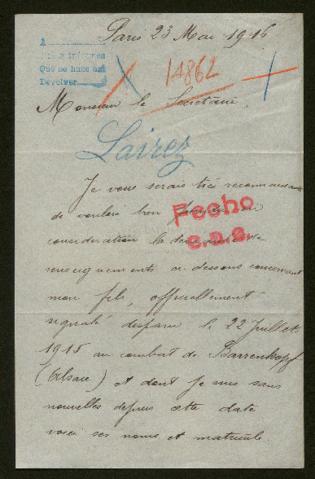 Paris 23 Mai 1916
A
Que se hace así
Devolver
14862
Monsieur le Secrétaire,
Lairez
Je vous serais très reconnaissant
de vouloir bien prendre en
Fecho
considération la demande de
e.a.e.
renseignements ci dessous concernant
mon fils, officiellement
signalé disparu le 22 Juillet
1915 au combat de Barrenkopf
(Alsace) et dont je suis sans
nouvelles depuis cette date
voici ses noms et matricule